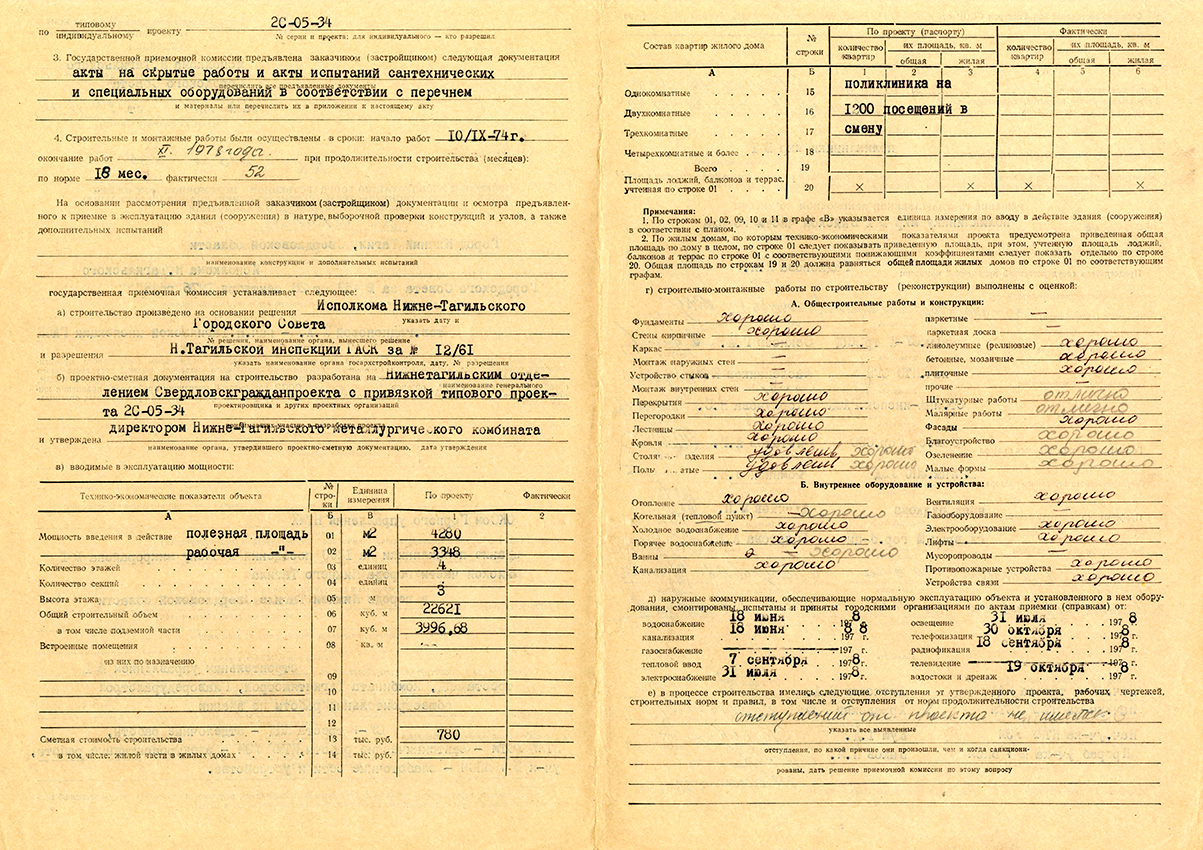 типовому
по индивидуальному проекту 2С-05-34
№ серии и проекта; для индивидуального — кто разрешил
3. Государственной приемочной комиссии предъявлена заказчиком (застройщиком) следующая документация
акты на скрытые работы и акты испытаний сантехнических
перечислить все предъявленные документы
и специальных оборудований в соответствии с перечнем
и материалы или перечислить их в приложении к настоящему акту
4. Строительные и монтажные работы были осуществлены в сроки: начало работ 10/IX-74г.
окончание работ XI. 1978 года. при продолжительности строительства (месяцев):
по норме 18 мес. фактически 52
На основании рассмотрения предъявленной заказчиком (застройщиком) документации и осмотра предъявлен-
ного к приемке в эксплуатацию здания (сооружения) в натуре, выборочной проверки конструкций и узлов, а также
дополнительных испытаний
наименование конструкции и дополнительных испытаний
государственная приемочная комиссия устанавливает следующее:
а) строительство произведено на основании решения Исполкома Нижне-Тагильского
указать дату и
Городского Совета
№ решения, наименование органа, вынесшего решение
и разрешения Н.Тагильской инспекции ГАСК за № 12/61
указать наименование органа госархстройконтроля, дату, № разрешения
б) проектно-сметная документация на строительство разработана на Нижнетагильским отде-
наименование генерального
лением Свердловскгражданпроекта с привязкой типового проек-
проектировщика и других проектных организаций
та 2С-05-34
директором Нижне-Тагильского металлургического комбината
и утверждена
наименование органа, утвердившего проектно-сметную документацию, дата утверждения
в) вводимые в эксплуатацию мощности:
Технико-экономические показатели объекта № стро-ки Единица измерения По проекту Фактически
А Б В 1 2
Мощность введения в действие полезная площадь 01 м2 4280
рабочая -"- 02 м2 3348
Количество этажей 03 единиц 4
Количество секций 04 единиц
Высота этажа 05 м 3
Общий строительный объем 06 куб. м 22621
в том числе подземной части 07 куб. м 3996,68
Встроенные помещения 08 кв. м
из них по назначению
09
10
11
12
Сметная стоимость строительства 13 тыс. руб. 780
в том числе: жилой части в жилых домах 14 тыс. руб.
Состав квартир жилого дома № строки По проекту (паспорту) Фактически
количество квартир их площадь, кв. м количество квартир их площадь, кв. м
общая жилая общая жилая
А Б 1 2 3 4 5 6
Однокомнатные 15 поликлиника на
Двухкомнатные 16 1200 посещений в
Трехкомнатные 17 смену
Четырехкомнатные и более 18
Всего 19
Площадь лоджий, балконов и террас,
учтенная по строке 01 20 × × × ×
Примечания:
1. По строкам 01, 02, 09, 10 и 11 в графе «В» указывается единица измерения по вводу в действие здания (сооружения)
в соответствии с планом.
2. По жилым домам, по которым технико-экономическими показателями проекта предусмотрена приведенная общая
площадь по дому в целом, по строке 01 следует показывать приведенную площадь, при этом, учтенную площадь лоджий,
балконов и террас по строке 01 с соответствующими понижающими коэффициентами следует показать отдельно по строке
20. Общая площадь по строкам 19 и 20 должна равняться общей площади жилых домов по строке 01 по соответствующим
графам.
г) строительно-монтажные работы по строительству (реконструкции) выполнены с оценкой:
А. Общестроительные работы и конструкции:
Фундаменты хорошо
Стены кирпичные хорошо
Каркас —
Монтаж наружных стен —
Устройство стыков —
Монтаж внутренних стен —
Перекрытия хорошо
Перегородки хорошо
Лестницы хорошо
Кровля хорошо
Столя изделия удовлетв хорошо
Полы удовлетв хорошо
паркетные —
паркетная доска —
линолеумные (релиновые) хорошо
бетонные, мозаичные хорошо
плиточные хорошо
прочие —
Штукатурные работы отлично
Малярные работы отлично
Фасады хорошо
Благоустройство хорошо
Озеленение хорошо
Малые формы хорошо
Б. Внутреннее оборудование и устройства:
Отопление хорошо
Котельная (тепловой пункт) — хорошо
Холодное водоснабжение хорошо
Горячее водоснабжение хорошо
Ванны — хорошо
Канализация хорошо
Вентиляция хорошо
Газооборудование —
Электрооборудование хорошо
Лифты хорошо
Мусоропроводы —
Противопожарные устройства хорошо
Устройства связи хорошо
д) наружные коммуникации, обеспечивающие нормальную эксплуатацию объекта и установленного в нем обору-
дования, смонтированы, испытаны и приняты городскими организациями по актам приемки (справкам) от:
водоснабжение 18 июня 1978 г.
канализация 18 июня 1978 г.
газоснабжение 197 г.
тепловой ввод 7 сентября 1978 г.
электроснабжение 31 июля 1978 г.
освещение 31 июля 1978
телефонизация 30 октября 1978 г.
радиофикация 18 сентября 1978 г.
телевидение 197 г.
водостоки и дренаж 19 октября 1978 г.
е) в процессе строительства имелись следующие отступления от утвержденного проекта, рабочих чертежей,
строительных норм и правил, в том числе и отступления от норм продолжительности строительства
отступлений от проекта не имеется
указать все выявленные
отступления, по какой причине они произошли, чем и когда санкциони-
рованы, дать решение приемочной комиссии по этому вопросу